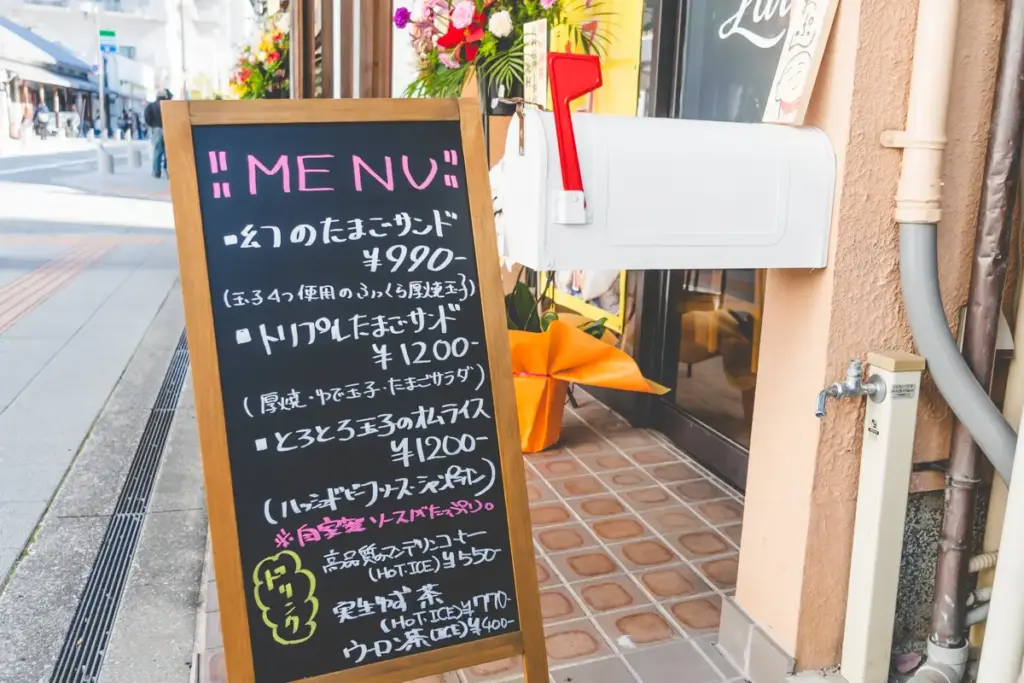 "MENU"
▪幻のたまごサンド
¥990-
(玉子4つ使用のふっくら厚焼玉子)
▪トリプルたまごサンド
¥1200-
(厚焼・ゆで玉子・たまごサラダ)
▪とろとろ玉子のオムライス
¥1200-
(ハッシュドビーフソース・シャンピニオン)
※自家製ソースがたっぷり。
ドリンク
高品質のマンデリンコーヒー
(HOT.ICE)¥550-
実生ゆず茶
(HOT.ICE)¥770-
ウーロン茶(ICE)¥400-